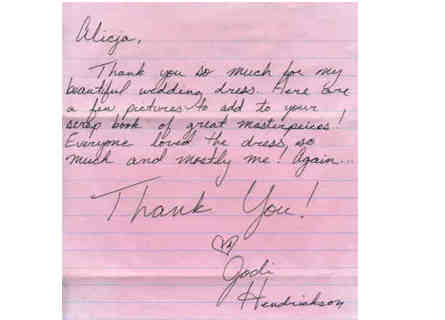 Alicja,
Thank you so much for my
beautiful wedding dress. Here are
a few pictures to add to your
scrap book of great masterpieces!
Everyone loved the dress, so
much and mostly me! Again...
Thank You!
Jodi
Hendrickson